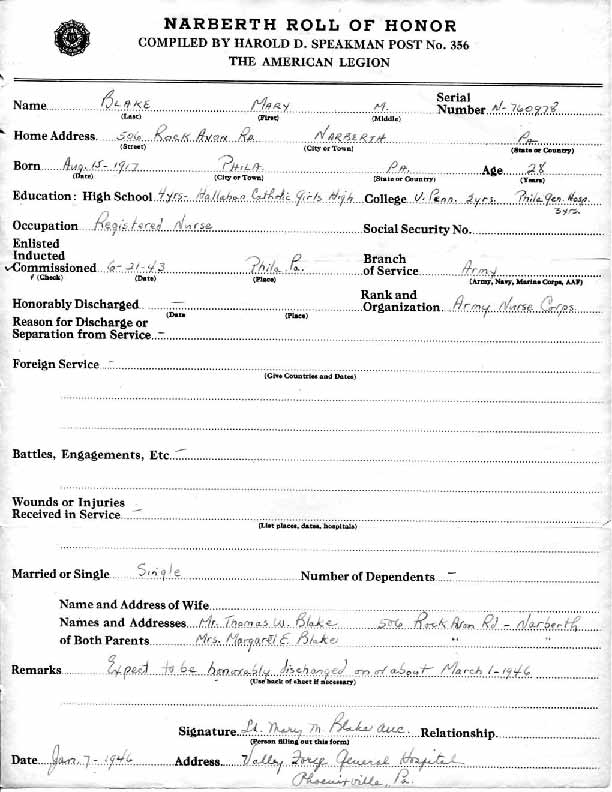 NARBERTH ROLL OF HONOR
COMPILED BY HAROLD D. SPEAKMAN POST No. 356
THE AMERICAN LEGION
Name BLAKE MARY M. Serial Number N-760978
(Last) (First) (Middle)
Home Address 506 ROCK AVON RD NARBERTH Pa
(Street) (City or Town) (State or Country)
Born Aug. 15-1917 PHILA PA. Age 28
(Date) (City or Town) (State or Country) (Years)
Education: High School 4yrs- Hallahan Catholic Girls High College U. Penn. 2yrs. Phila Gen. Hosp.
3yrs.
Occupation Registered Nurse Social Security No.
Enlisted
Inducted
✓Commissioned 6-21-43 Phila Pa. Branch of Service Army
(Check) (Date) (Place) (Army, Navy, Marine Corps, AAF)
Honorably Discharged — Rank and Organization Army Nurse Corps
(Date (Place)
Reason for Discharge or
Separation from Service -
Foreign Service -
(Give Countries and Dates)
Battles, Engagements, Etc. -
Wounds or Injuries
Received in Service -
(List places, dates, hospitals)
Married or Single Single Number of Dependents -
Name and Address of Wife
Names and Addresses Mr. Thomas W. Blake 506 Rock Avon Rd - Narberth
of Both Parents Mrs. Margaret E. Blake " "
Remarks Expect to be honorably discharged on or about March 1-1946
(Use back of sheet if necessary)
Signature Lt. Mary M. Blake anc. Relationship
(Person filling out this form)
Date Jan. 7-1946 Address Valley Forge General Hospital
Phoenixville, Pa.